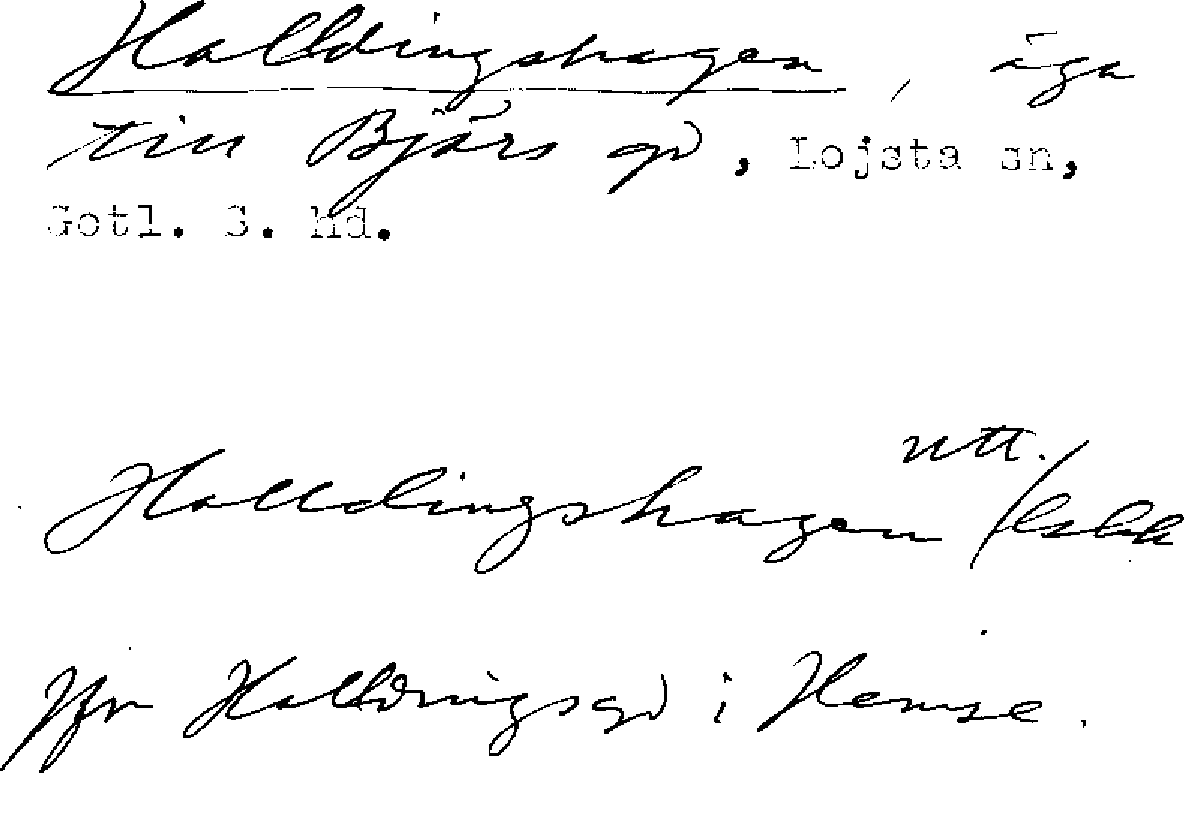 Halldingshagen, äga
till Bjärs gd, Lojsta sn,
Gotl. S. hd.
utt.
Halldingshagen
Jfr Halldingsgd i Hemse.